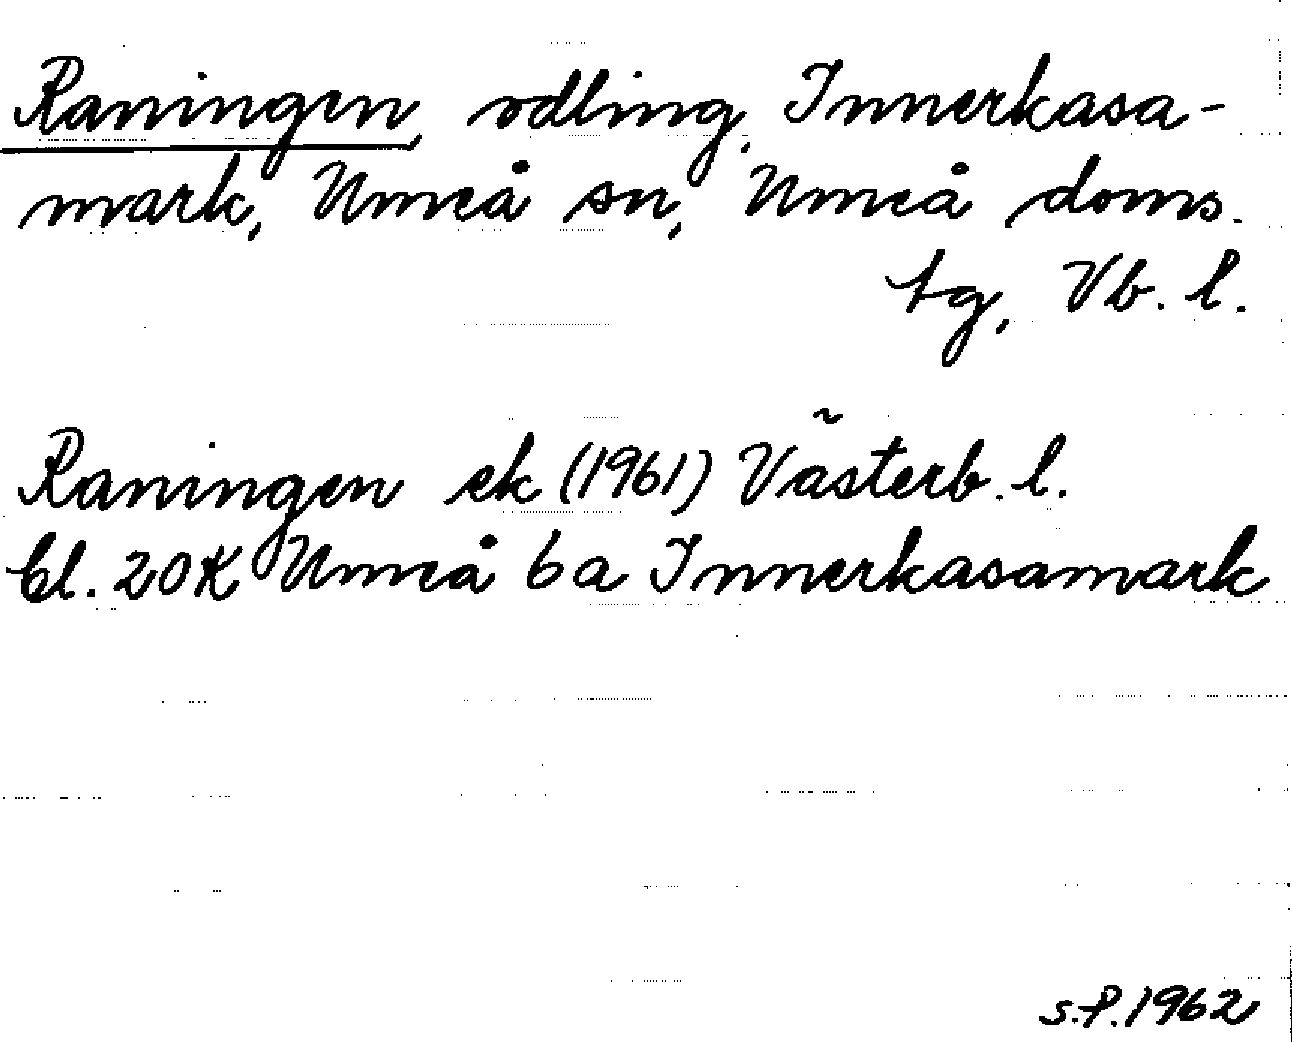 Raningen, odling, Innerkasa-
mark, Umeå sn, Umeå doms.
tg, Vb. l.
Raningen ek (1961) Västerb. l.
bl. 20K Umeå 6a Innerkasamark
S.P. 1962